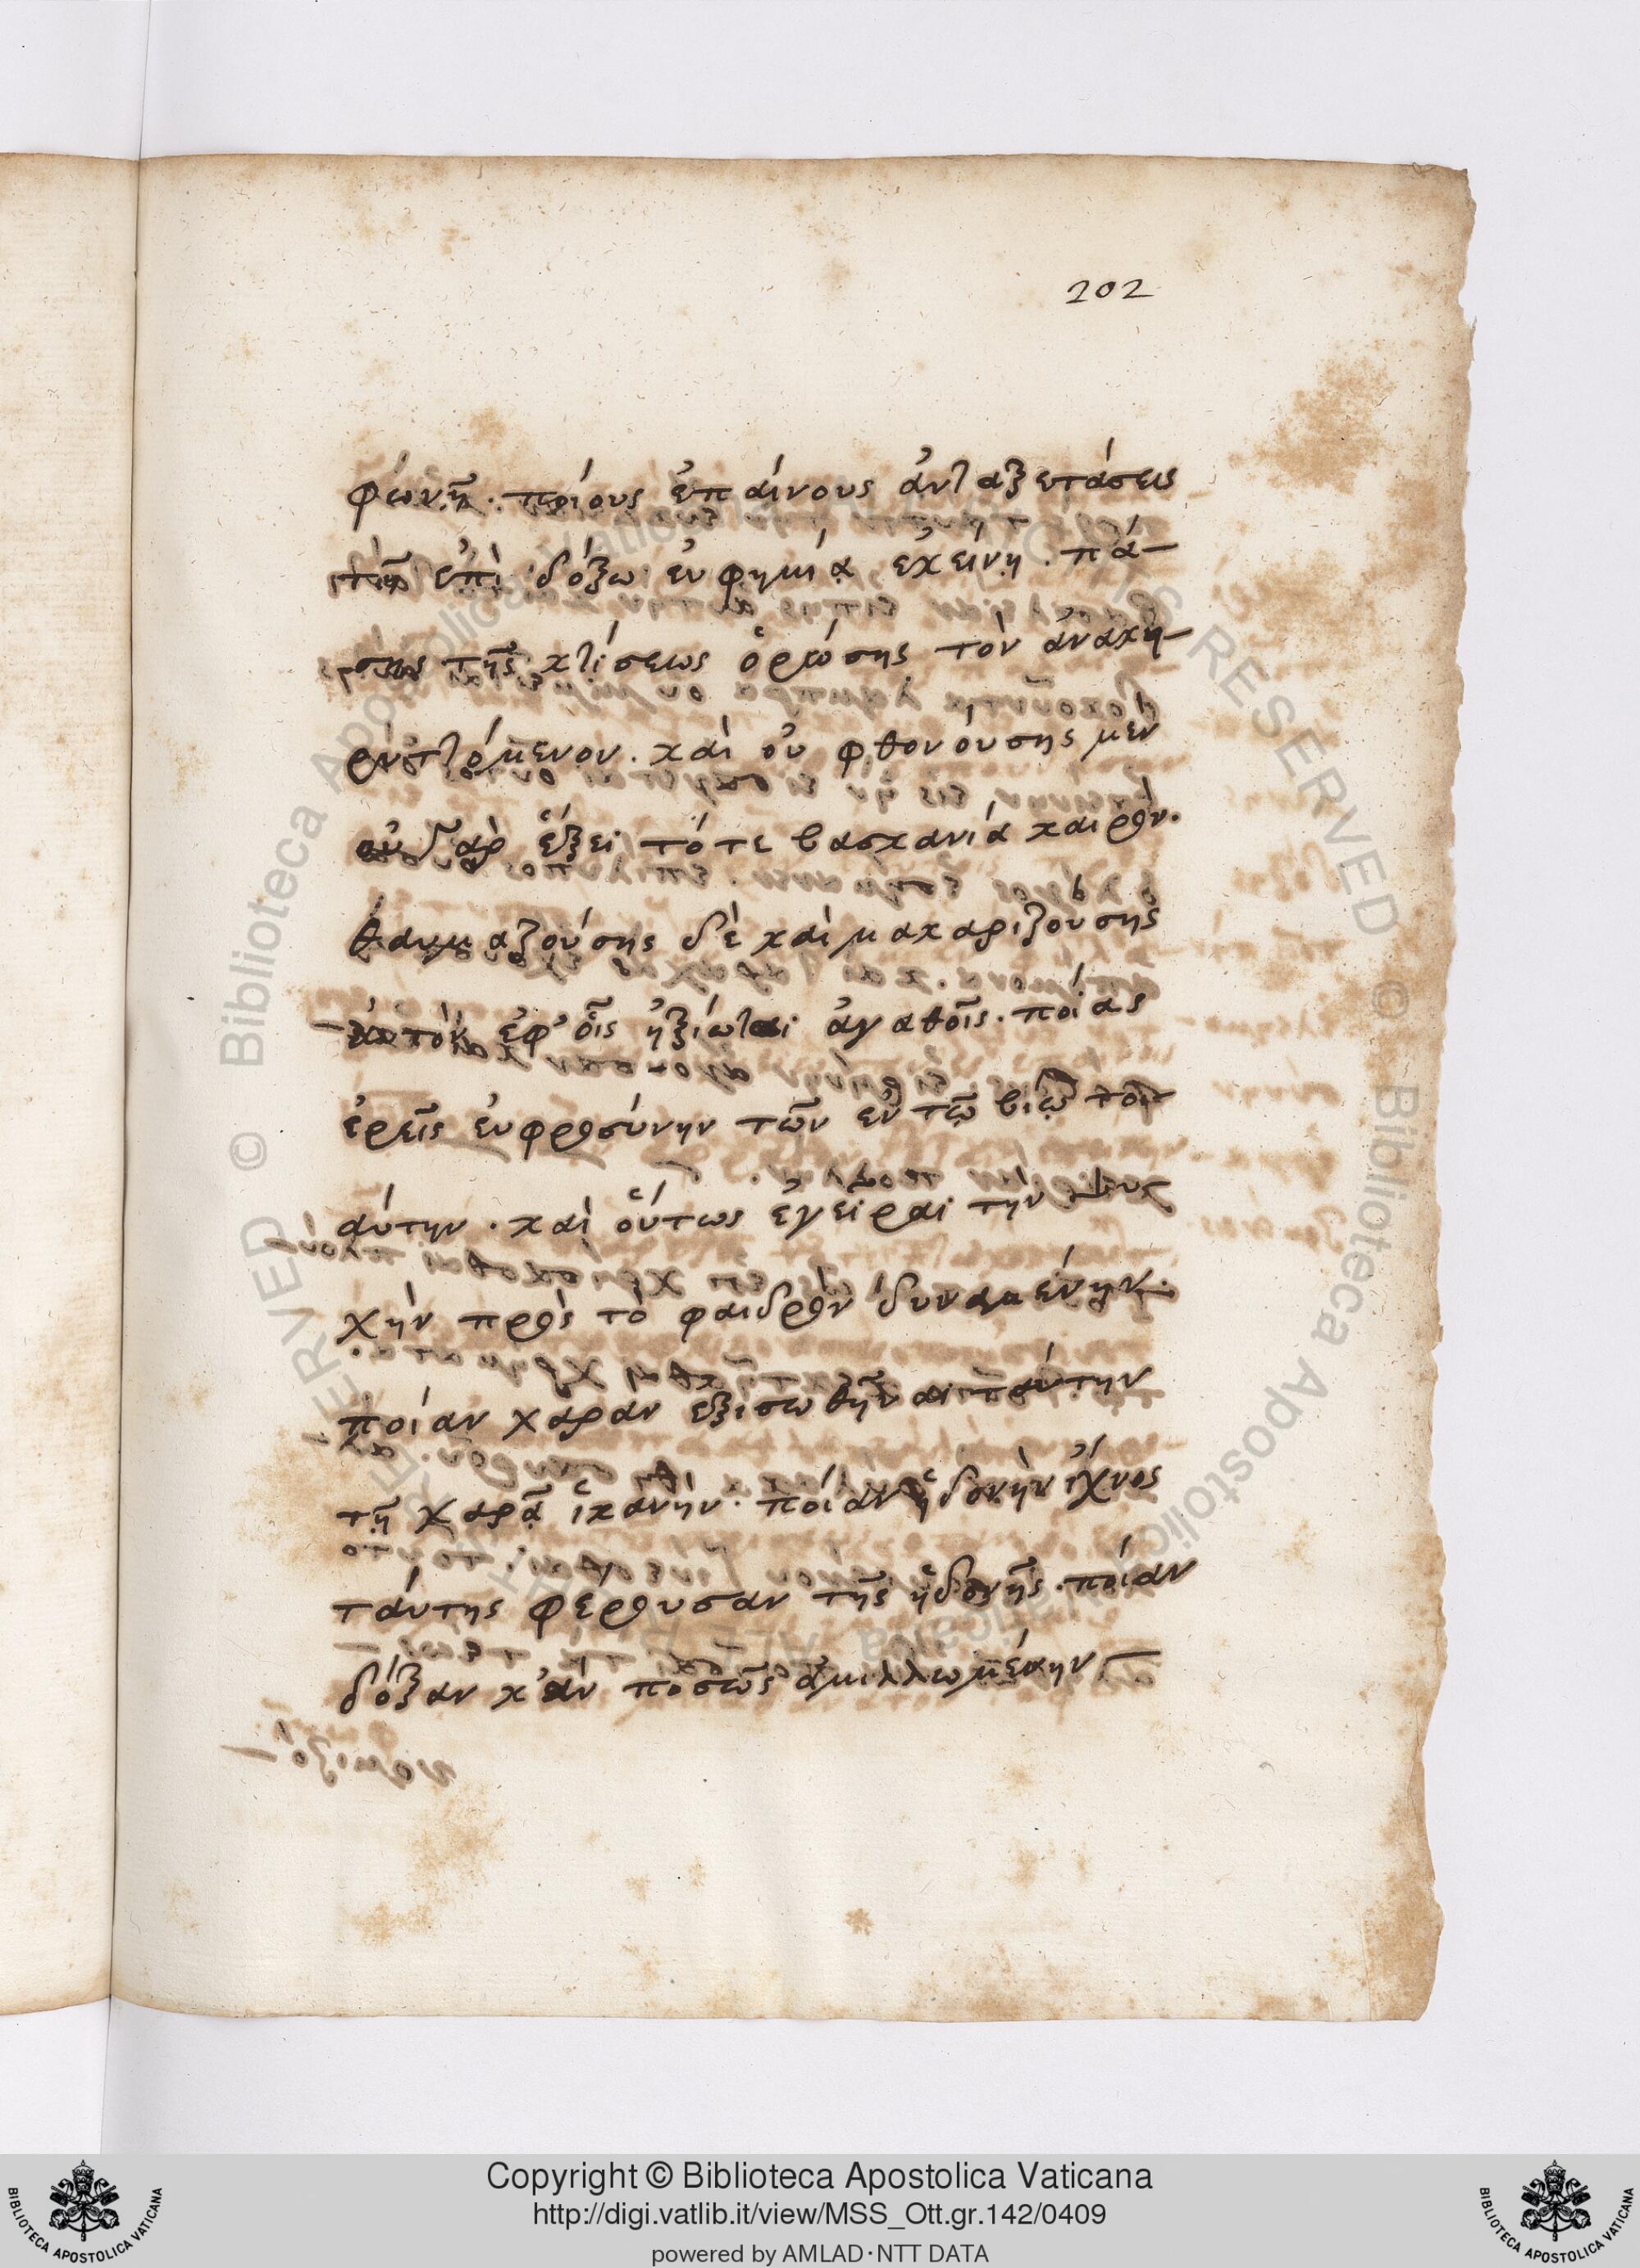 202
φωνῇ· ποίους ἐπαίνους ἀντεξετάσεις
τῇ ἐπὶ δόξῳ εὐφημίᾳ ἐκείνῃ. πά-
σης τῆς κτίσεως ὁρώσης τὸν ἀνακη-
ρυττόμενον. καὶ οὐ φθονούσης μὲν
οὐ γὰρ ἕξει τότε βασκανία καιρόν.
θαυμαζούσης δὲ καὶ μακαριζούσης
αὐτὸν ἐφ' οἷς ἠξίωται ἀγαθοῖς. ποίας
ἐρεῖς εὐφροσύνην τῶν ἐν τῷ βίῳ τοι
αύτην. καὶ οὕτως ἐγεῖραι τὴν ψυ
χὴν πρὸς τὸ φαιδρὸν δυναμένην.
ποίαν χαρὰν ἐξισωθῆναι ταύτην
τῇ χαρᾷ ἱκανὴν. ποίαν ἡδονὴν ἴχνος
ταύτης φέρουσαν τῆς ἡδονῆς. ποίαν
δόξαν κ'ἂν ποσῶς ἁμιλλωμένην
Copyright © Biblioteca Apostolica Vaticana
http://digi.vatlib.it/view/MSS_Ott.gr.142/0409
powered by AMLAD·NTT DATA
BIBLIOTECA APOSTOLICA VATICANA
BIBLIOTECA APOSTOLICA VATICANA